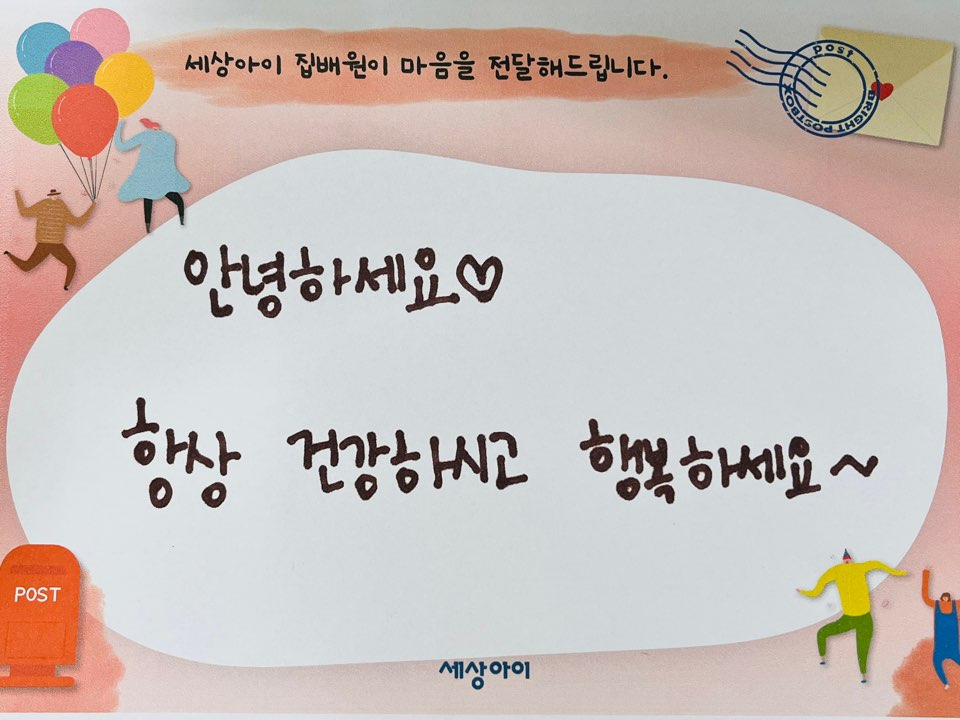 세상아이 집배원이 마음을 전달해드립니다.
post
BRIGHT POSTBOX
안녕하세요♡
항상 건강하시고 행복하세요~
POST
세상아이